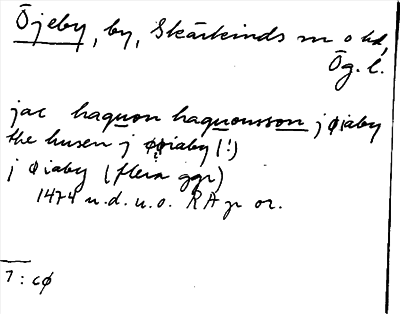 Öjeby, by, Skärkinds sn o hd,
Ög. l.
jac haquon haquonsson j øiaby
the husen j øøiaby (!)
j øiaby (flera ggr)
1474 u.d. u.o. RA p or.
7 : cø